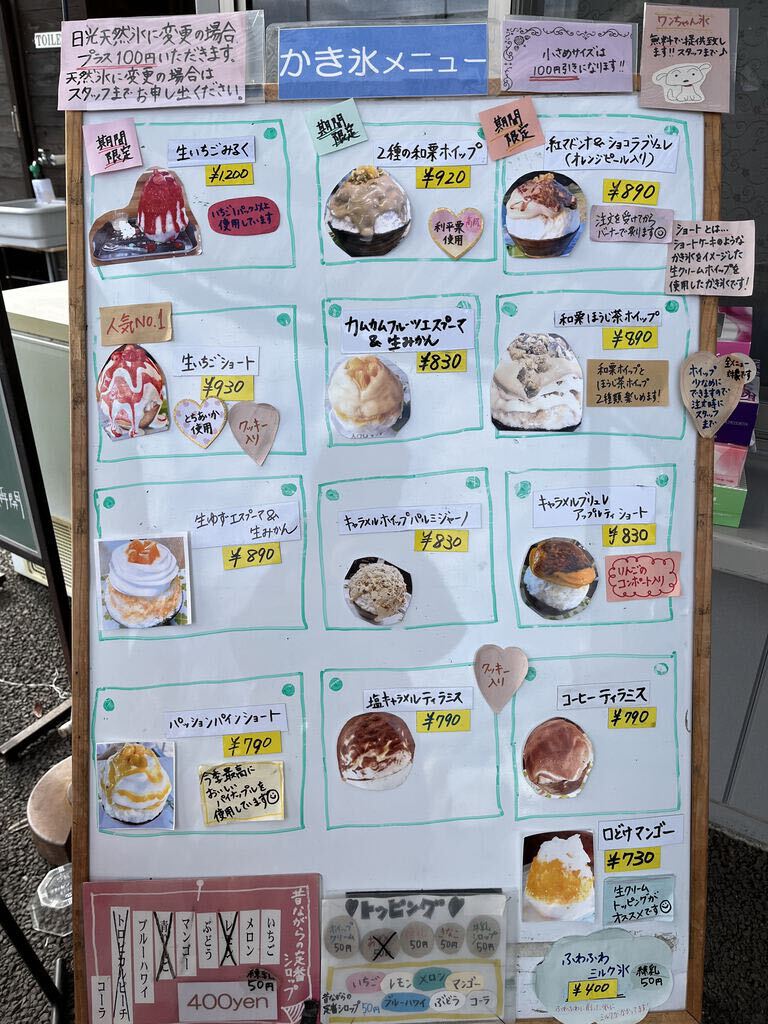 TOILE
日光天然氷に変更の場合
プラス100円いただきます。
天然氷に変更の場合は
スタッフまでお申し出ください。
かき氷メニュー
小さめサイズは
100円引きになります!!
ワンちゃん氷
無料で提供致し
ます!!スタッフまで♪
期間
限定
生いちごみるく
¥1,200
いちご1パック以上
使用しています
期間
限定
2種の和栗ホイップ
¥920
利平栗
使用
期間
限定
紅マドンナ&ショコラブリュレ
(オレンジピール入り)
¥890
注文を受けてから
バーナーで炙ります
ショートとは…
ショートケーキのような
かき氷をイメージした
生クリームホイップを
使用したかき氷です!
人気No.1
生いちごショート
¥930
とちあいか
使用
クッキー
入り
カムカムフルーツエスプーマ
&生みかん
¥830
和栗ほうじ茶ホイップ
¥890
和栗ホイップと
ほうじ茶ホイップ
2種類楽しめます!
ホイップ
少なめに
できますので
注文時に
スタッフ
まで
全メニュー
生ゆずエスプーマ&
生みかん
¥890
キャラメルホイップパルミジャーノ
¥830
キャラメルブリュレ
アップルティショート
¥830
りんごの
コンポート入り
パッションパインショート
¥790
今季最高に
おいしい
パイナップルを
使用しています
塩キャラメルティラミス
¥790
クッキー
入り
コーヒーティラミス
¥790
口どけマンゴー
¥730
生クリーム
トッピングが
オススメです
昔ながらの定番シロップ
いちご
メロン
レモン
ぶどう
マンゴー
ブルーハワイ
トロピカルピーチ
コーラ
400yen
練乳
50円
トッピング
ホイップ
クリーム
50円
50円
きなこ
50円
シロップ
50円
いちご
レモン
メロン
マンゴー
昔ながらの
定番シロップ50円
ブルーハワイ
ぶどう
コーラ
ふわふわ
ミルク氷
¥400
練乳
50円